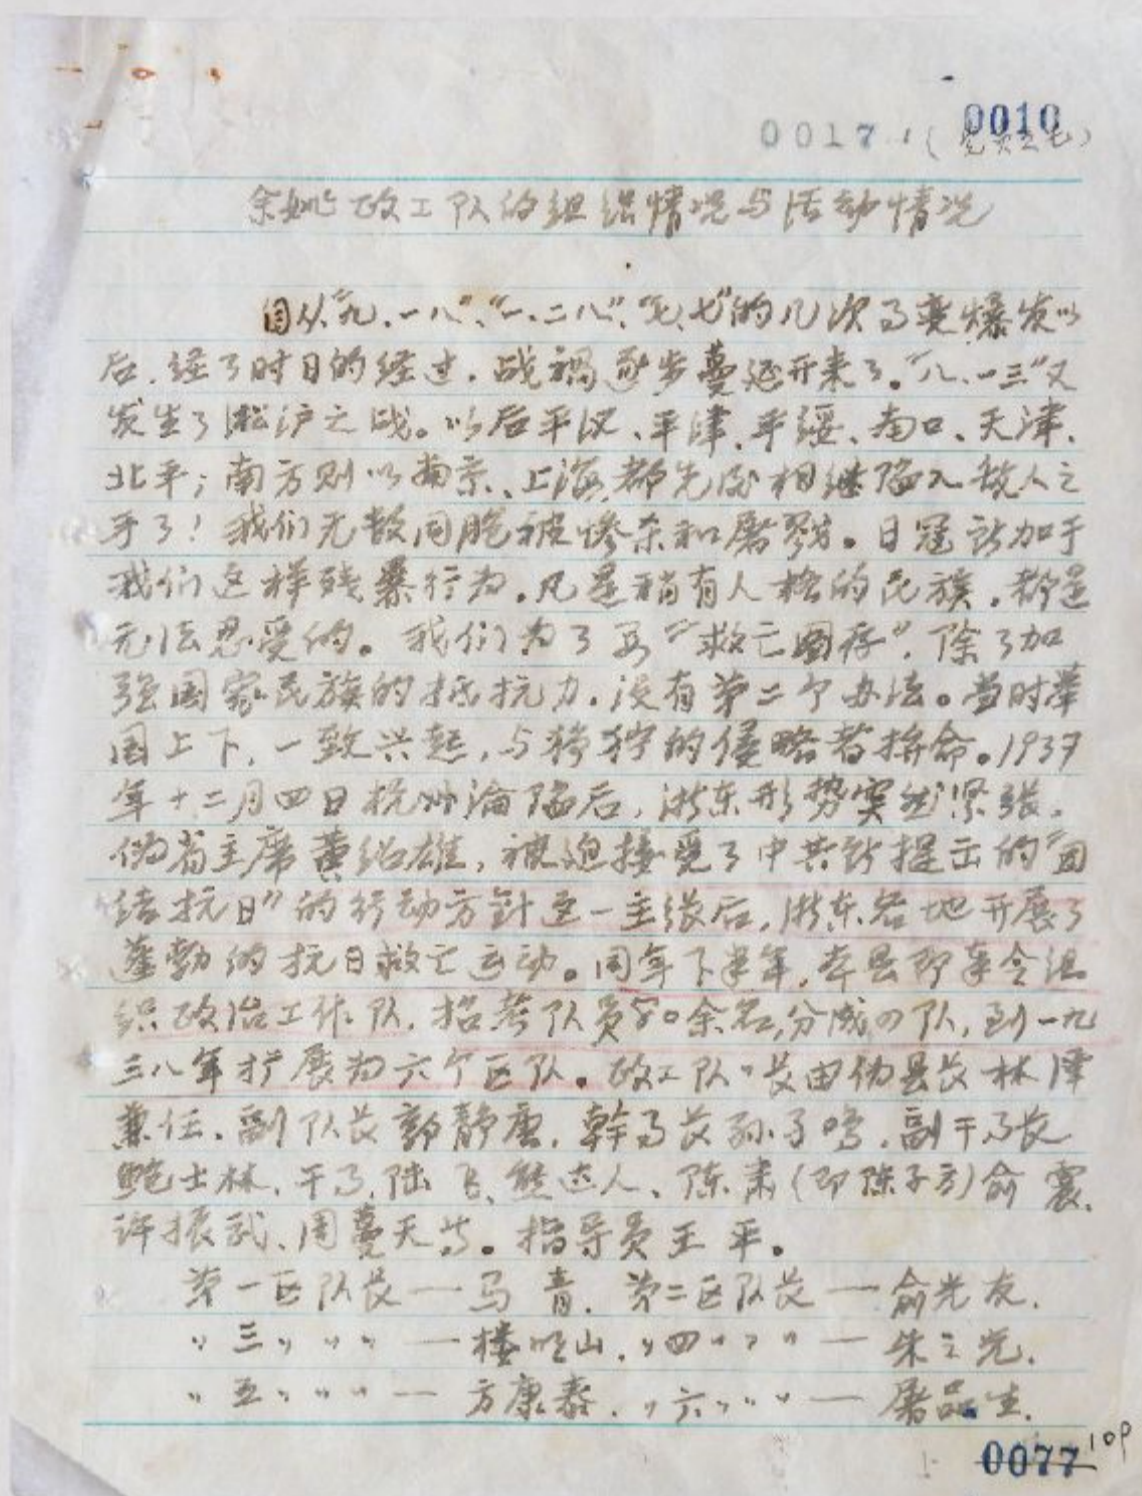 0010
0017
余姚政工队的组织情况与活动情况
自从"九.一八"、"一.二八"、"七.七"的几次事变爆发以
后.经了时日的经过.战祸逐步蔓延开来了。"八.一三"又
发生了淞沪之战。以后平汉、平津、平绥、南口、天津、
北平；南方则以南京、上海都先后相继陷入敌人之
手了！我们无数同胞被惨杀和屠戮。日寇所加于
我们这样残暴行为.凡是稍有人格的民族.都是
无法忍受的。我们为了要"救亡图存".除了加
强国家民族的抵抗力.没有第二个办法。当时举
国上下.一致兴起,与狰狞的侵略者拚命。1937
年十二月四日杭州沦陷后,浙东形势突然紧张。
伪省主席黄绍雄,被迫接受了中共所提出的"团
结抗日"的行动方针这一主张后,浙东各地开展了
蓬勃的抗日救亡运动。同年下半年,本县即奉令组
织政治工作队,招考队员余名,分成四队,到一九
三八年扩展为六个区队。政工队〃长由伪县长林泽
兼任.副队长郭静唐.幹事长孙子鸣.副干事长
鲍士林、干事.陆飞、熊达人、陈肃(即陈子方)俞震、
许振武、周蔓天等。指导员王平。
第一区队长—马青.第二区队长—俞光友.
〃三〃〃〃—楼明山.〃四〃〃〃—朱之光.
〃五〃〃〃—方康泰.〃六〃〃〃—屠品生.
0077
109